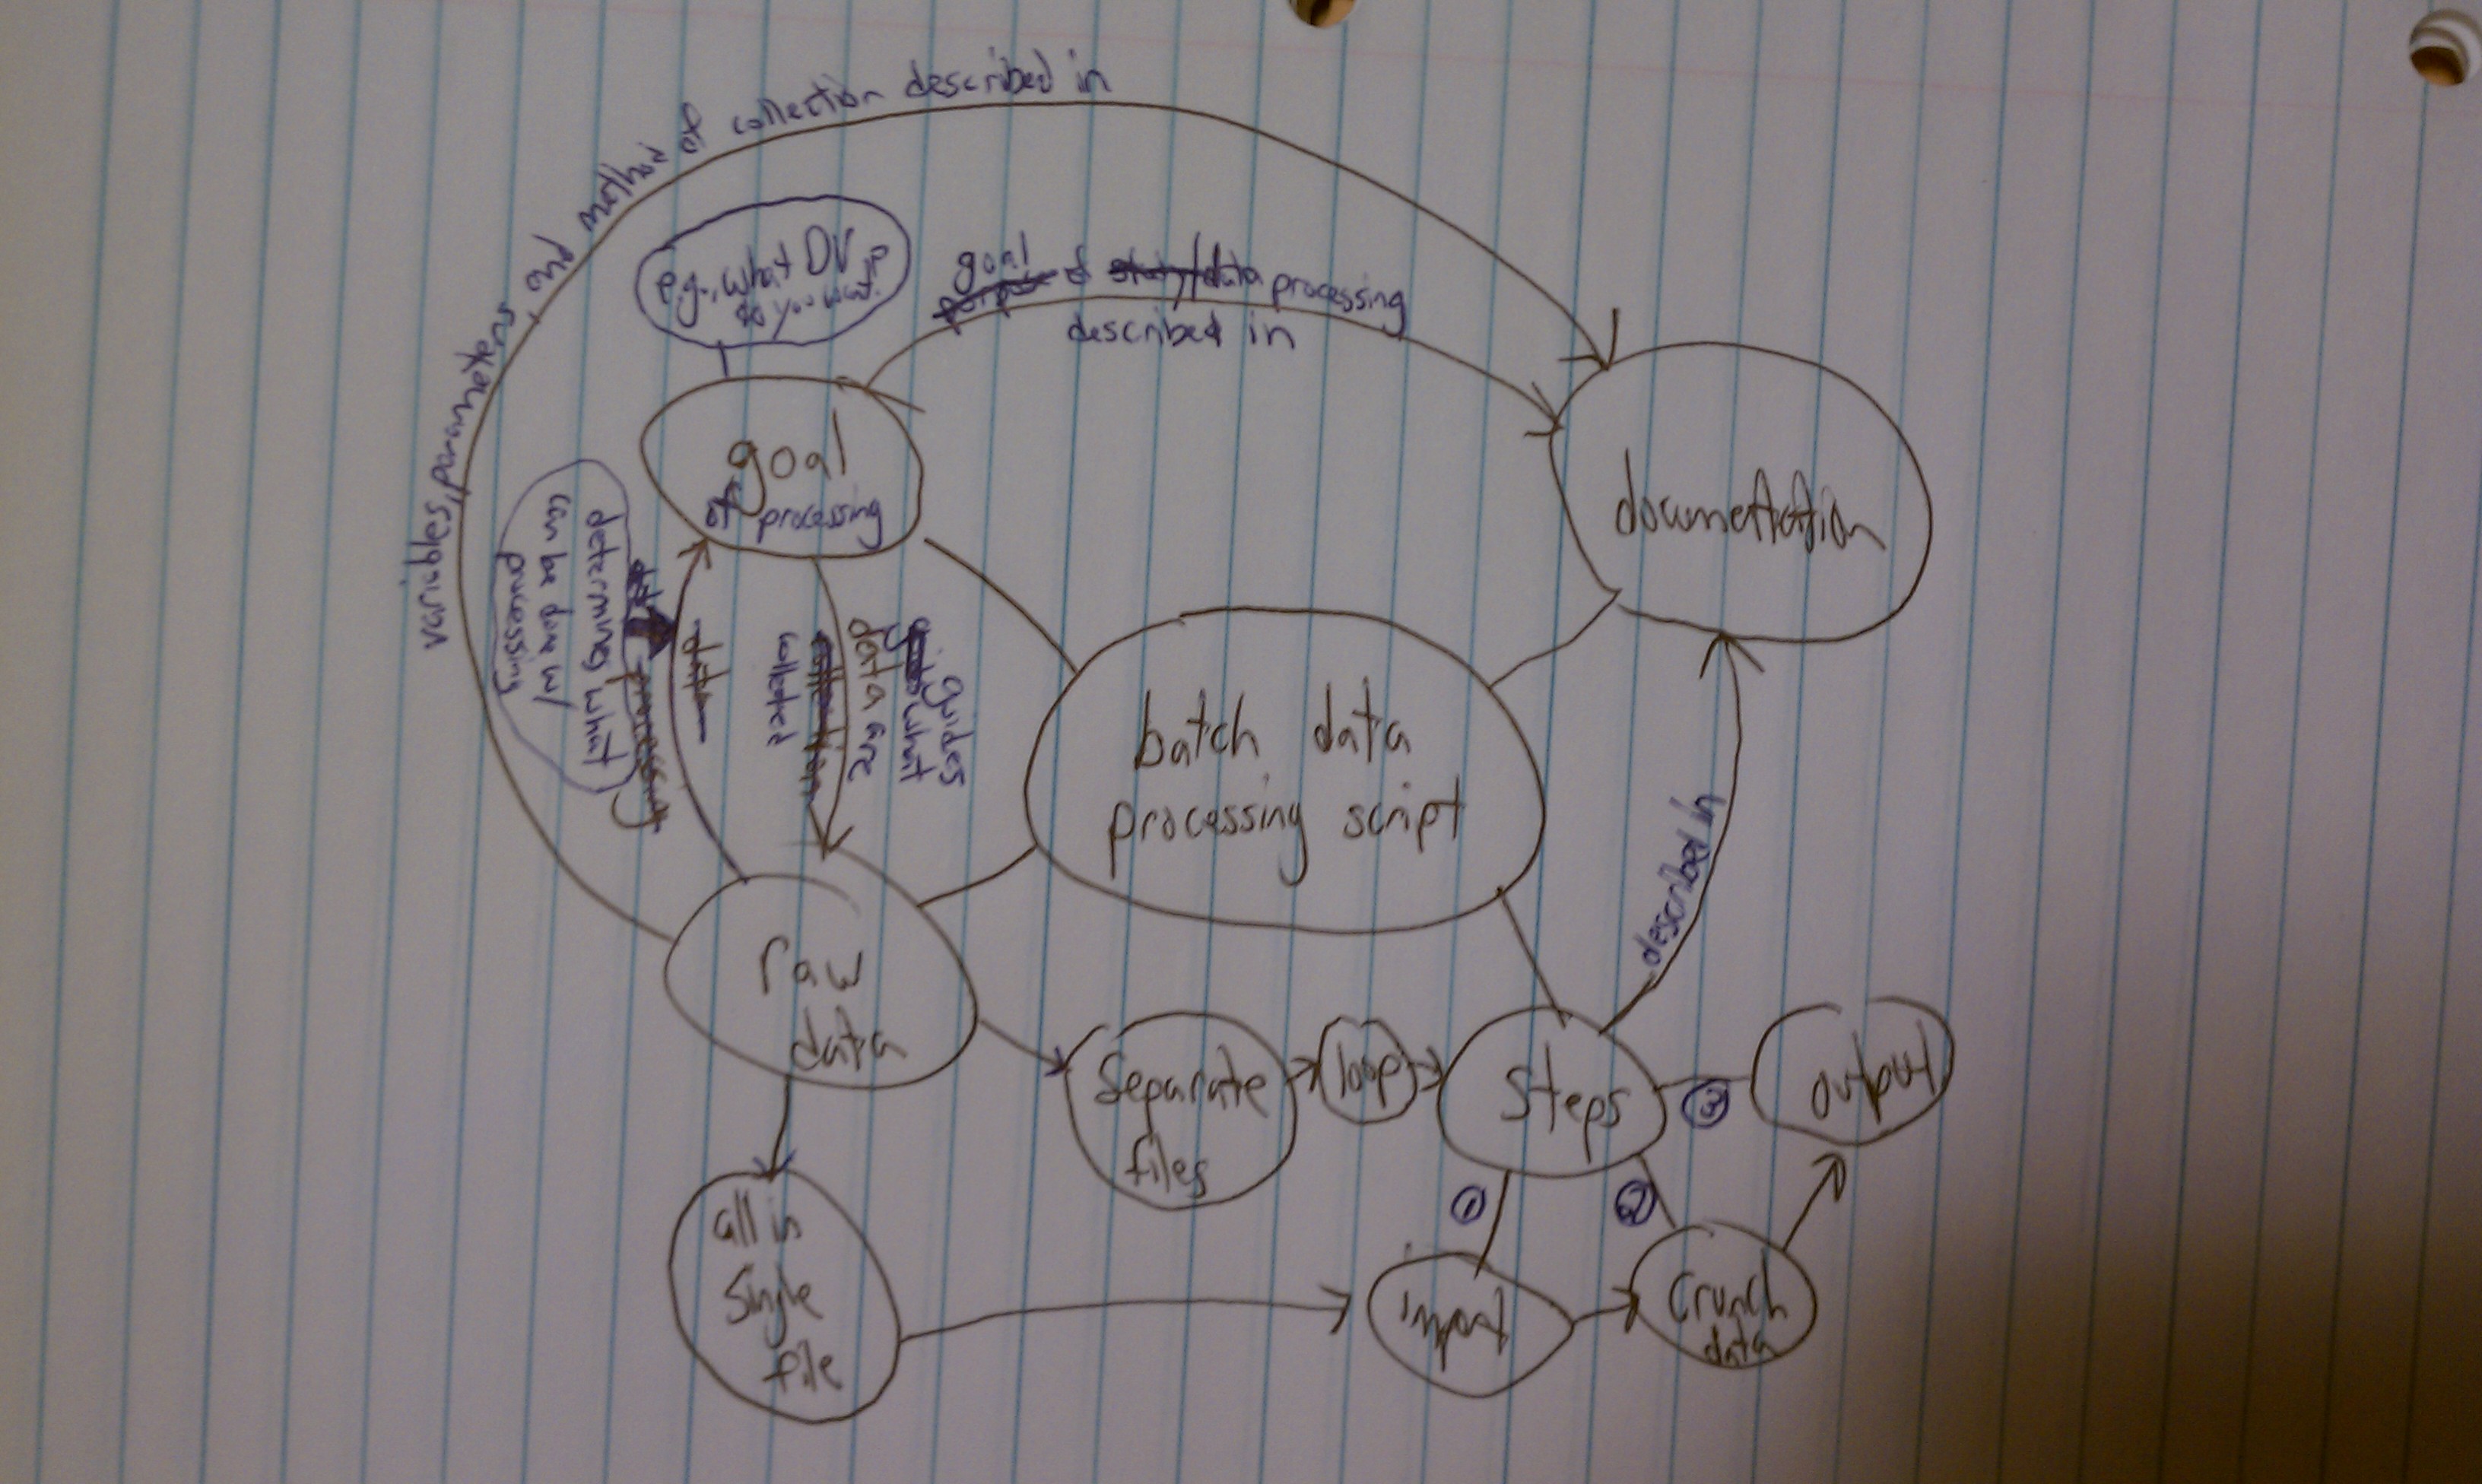 variables, parameters, and method of collection described in
e.g., what DV
do you want?
goal of data processing
described in
goal
of processing
documentation
determines what
can be done w/
processing
guides
what
data are
collected
batch data
processing script
described in
raw
data
Separate
files
loop
Steps
③
output
①
②
all in
Single
file
input
Crunch
data